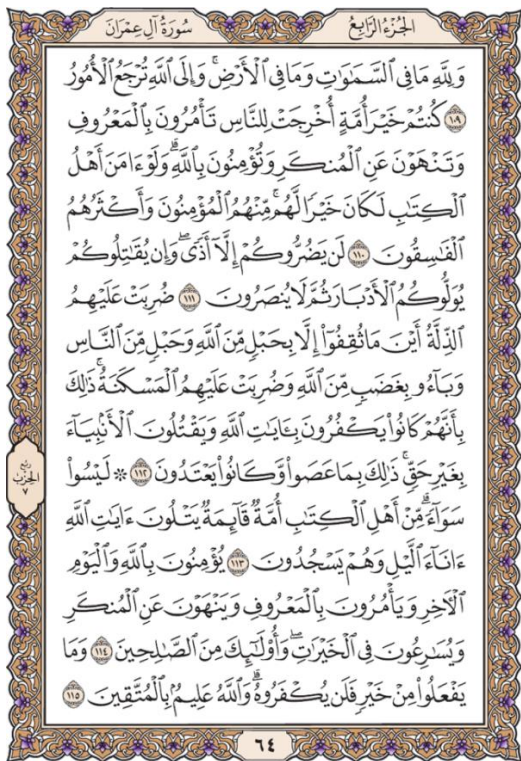 الجُزْءُ الرَّابِعُ
سُورَةُ آلِ عِمْرَان
وَلِلَّهِ مَا فِي ٱلسَّمَٰوَٰتِ وَمَا فِي ٱلْأَرْضِۚ وَإِلَى ٱللَّهِ تُرْجَعُ ٱلْأُمُورُ
١٠٩ كُنتُمْ خَيْرَ أُمَّةٍ أُخْرِجَتْ لِلنَّاسِ تَأْمُرُونَ بِٱلْمَعْرُوفِ
وَتَنْهَوْنَ عَنِ ٱلْمُنكَرِ وَتُؤْمِنُونَ بِٱللَّهِۗ وَلَوْ ءَامَنَ أَهْلُ
ٱلْكِتَٰبِ لَكَانَ خَيْرًا لَّهُمۚ مِّنْهُمُ ٱلْمُؤْمِنُونَ وَأَكْثَرُهُمُ
ٱلْفَٰسِقُونَ ١١٠ لَن يَضُرُّوكُمْ إِلَّآ أَذًىۖ وَإِن يُقَٰتِلُوكُمْ
يُوَلُّوكُمُ ٱلْأَدْبَارَ ثُمَّ لَا يُنصَرُونَ ١١١ ضُرِبَتْ عَلَيْهِمُ
ٱلذِّلَّةُ أَيْنَ مَا ثُقِفُوٓا۟ إِلَّا بِحَبْلٍ مِّنَ ٱللَّهِ وَحَبْلٍ مِّنَ ٱلنَّاسِ
وَبَآءُو بِغَضَبٍ مِّنَ ٱللَّهِ وَضُرِبَتْ عَلَيْهِمُ ٱلْمَسْكَنَةُۚ ذَٰلِكَ
بِأَنَّهُمْ كَانُوا۟ يَكْفُرُونَ بِـَٔايَٰتِ ٱللَّهِ وَيَقْتُلُونَ ٱلْأَنۢبِيَآءَ
بِغَيْرِ حَقٍّۚ ذَٰلِكَ بِمَا عَصَوا۟ وَّكَانُوا۟ يَعْتَدُونَ ١١٢ ۞ لَيْسُوا۟
سَوَآءًۗ مِّنْ أَهْلِ ٱلْكِتَٰبِ أُمَّةٌ قَآئِمَةٌ يَتْلُونَ ءَايَٰتِ ٱللَّهِ
ءَانَآءَ ٱلَّيْلِ وَهُمْ يَسْجُدُونَ ١١٣ يُؤْمِنُونَ بِٱللَّهِ وَٱلْيَوْمِ
ٱلْءَاخِرِ وَيَأْمُرُونَ بِٱلْمَعْرُوفِ وَيَنْهَوْنَ عَنِ ٱلْمُنكَرِ
وَيُسَٰرِعُونَ فِي ٱلْخَيْرَٰتِۖ وَأُو۟لَٰٓئِكَ مِنَ ٱلصَّٰلِحِينَ ١١٤ وَمَا
يَفْعَلُوا۟ مِنْ خَيْرٍ فَلَن يُكْفَرُوهُۗ وَٱللَّهُ عَلِيمٌۢ بِٱلْمُتَّقِينَ ١١٥
رُبْع
الحِزْب
٧
٦٤